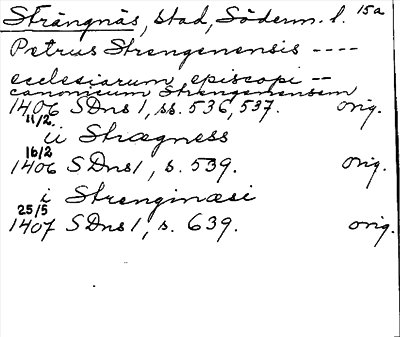 Strängnäs, stad, Söderm. l. 15a
Petrus Strengenensis ----
ecclesiarum episcopi --
canonicum Strengenensem
1406 11/2. SDns 1, ss. 536, 537. orig.
ii Strægness
1406 16/2 SDns 1, s. 539. orig.
i Strenginæsi
1407 25/5 SDns 1, s. 639. orig.